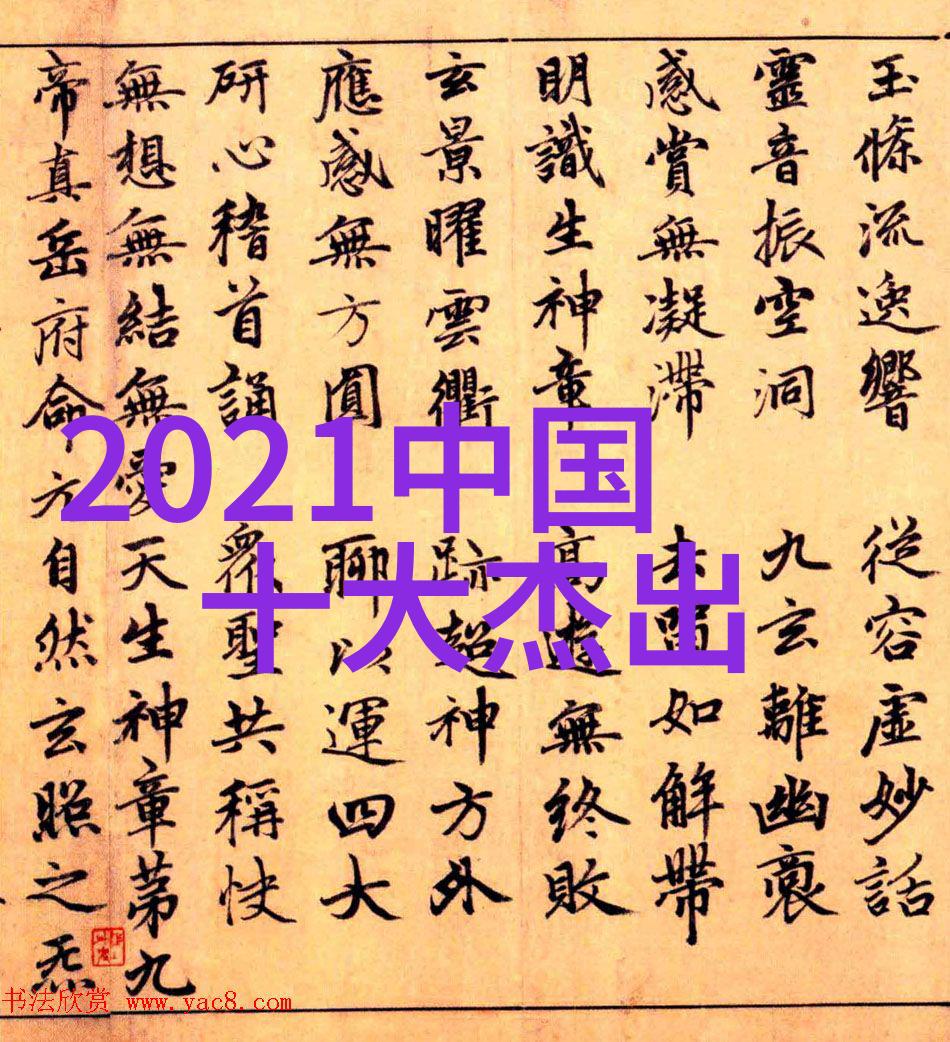 玉條流逸響 從容虛妙話
靈音振空洞 九玄離幽
感賞無凝滯 去留如解帶
明識生神章 高遊無終敗
玄景曜雲衢 跡超神方外
應感無方圓 聊以運四大
研心稽首誦 衆聖共稱快
無想無結無愛天生神章第九
帝真岳府命方自然玄照之炁
2021中国
十大杰出
书法欣赏 www.yac8.com